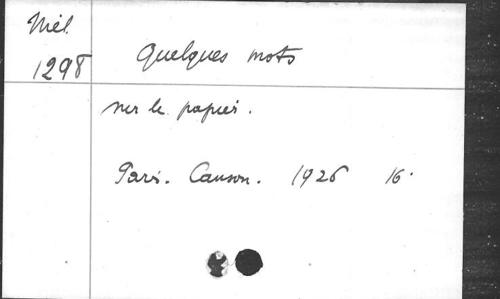 Niel.
1298
Quelques mots
sur le papier.
Paris. Canson. 1926 16°